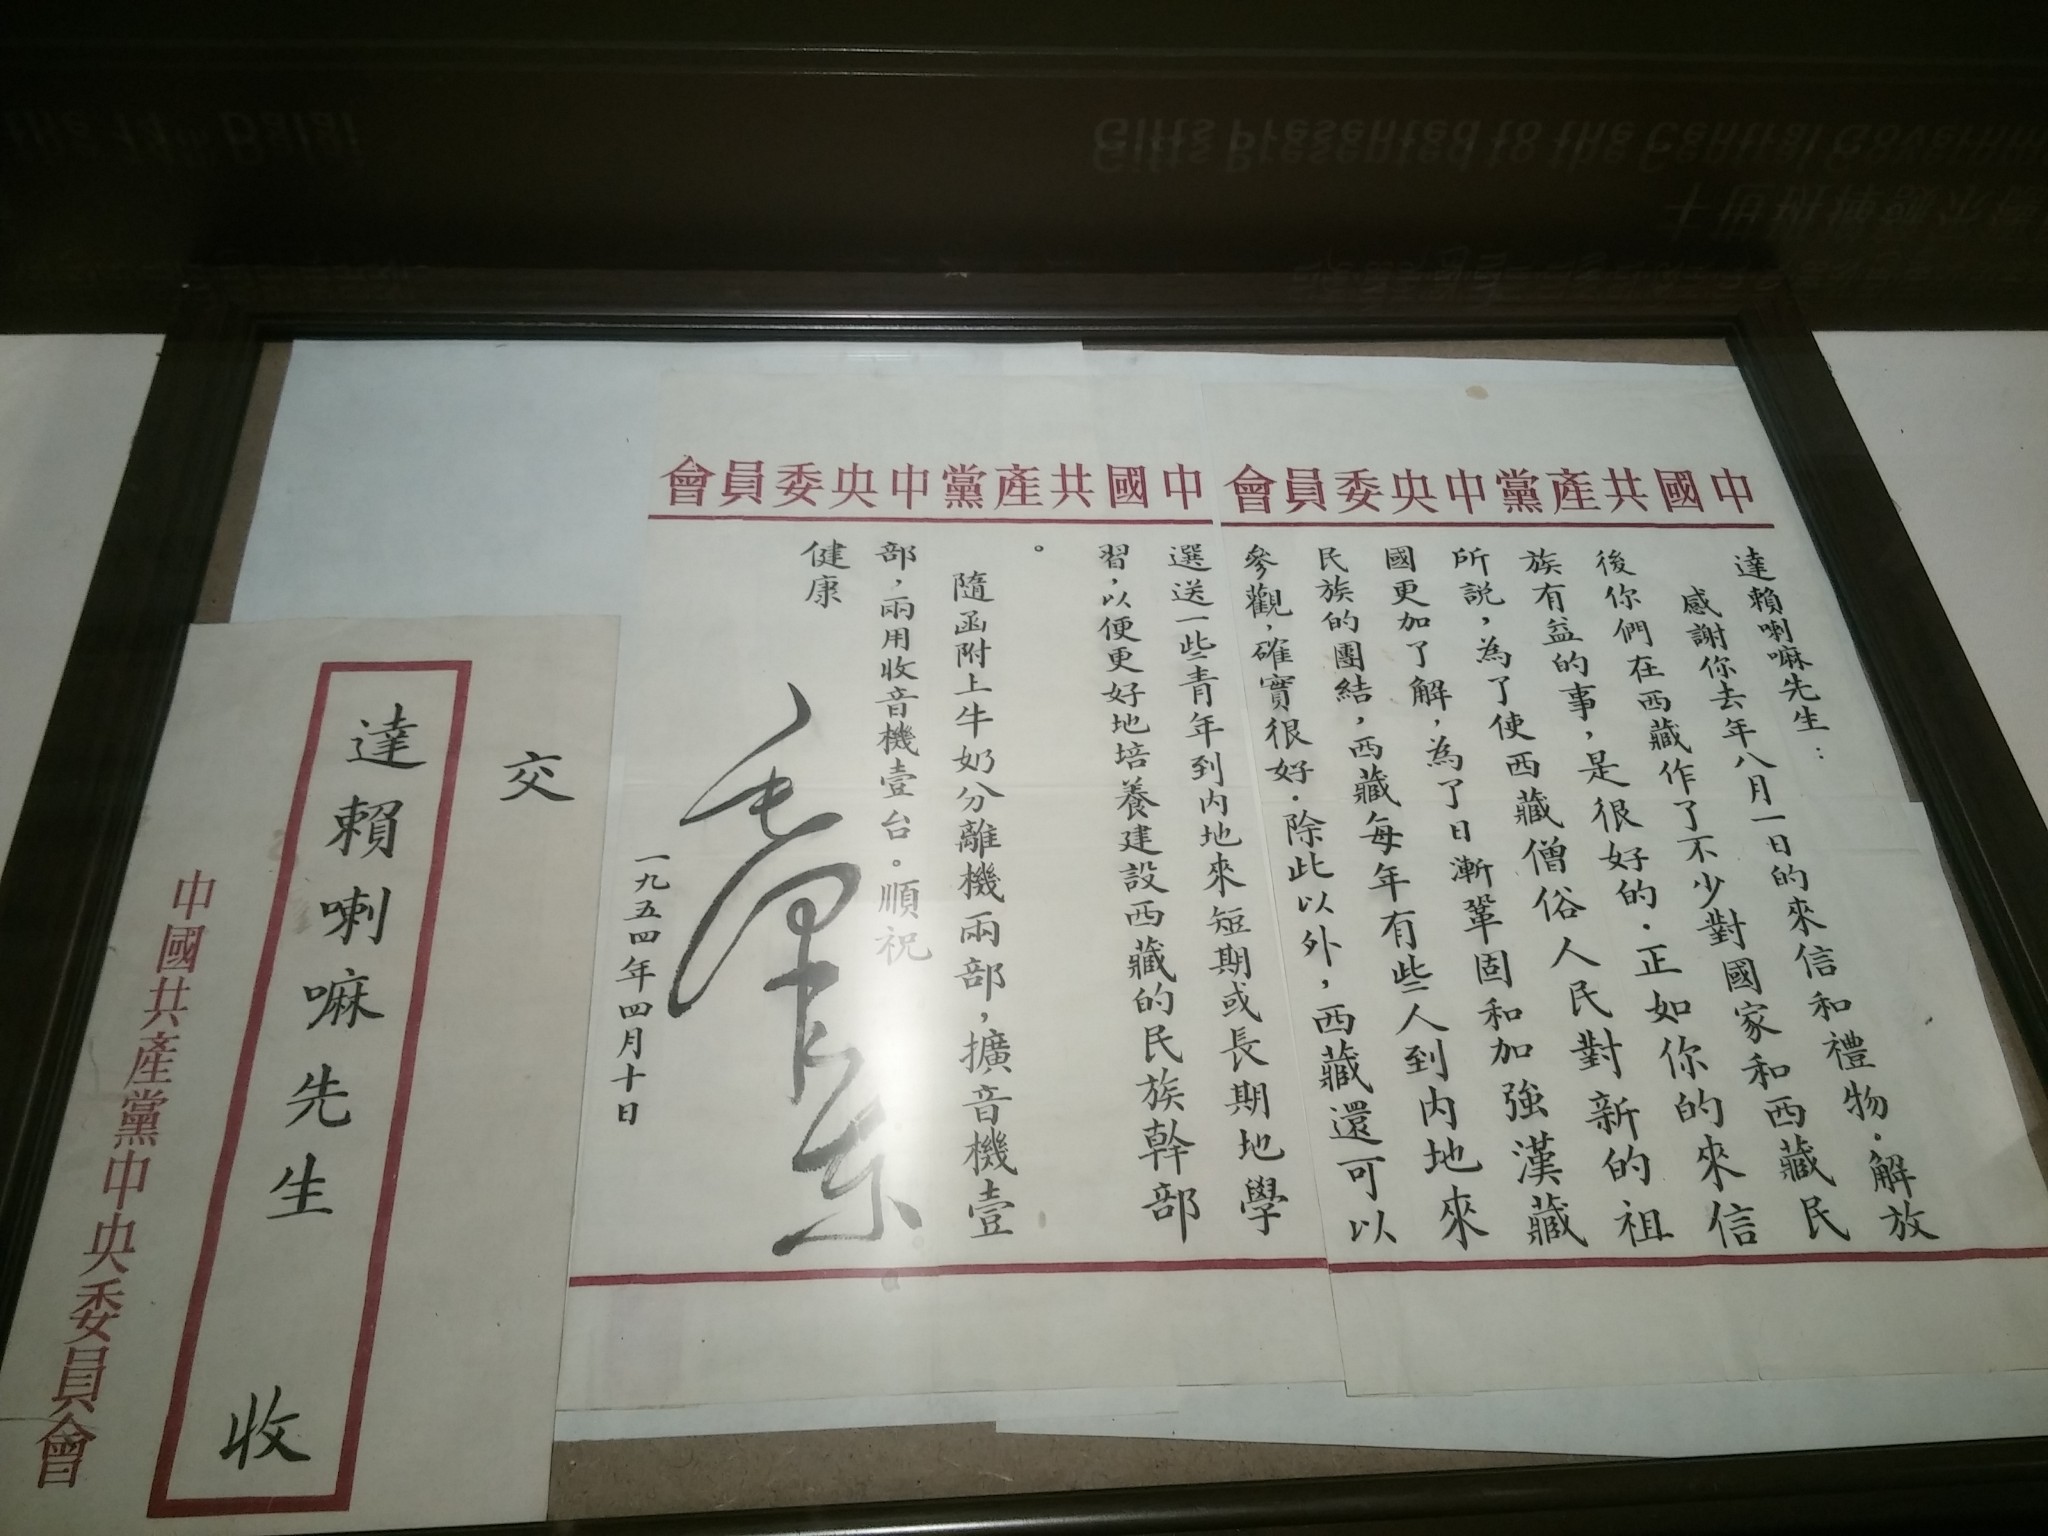 中國共產黨中央委員會
達賴喇嘛先生：
感謝你去年八月一日的來信和禮物．解放
後你們在西藏作了不少對國家和西藏民
族有益的事，是很好的．正如你的來信
所説，為了使西藏僧俗人民對新的祖
國更加了解，為了日漸鞏固和加強漢藏
民族的團結，西藏每年有些人到內地來
參觀，確實很好．除此以外，西藏還可以
中國共產黨中央委員會
選送一些青年到内地來短期或長期地學
習，以便更好地培養建設西藏的民族幹部
。
隨函附上牛奶分離機兩部，擴音機壹
部，兩用收音機壹台。順祝
健康
毛澤東
一九五四年四月十日
交
達賴喇嘛先生 收
中國共產黨中央委員會
the 14th Dalai
Gifts Presented to the Central